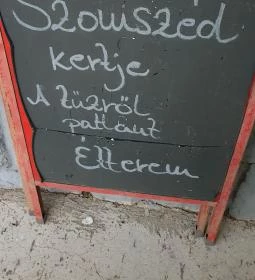 Szomszéd
kertje
A tűzről
pattant
Étterem